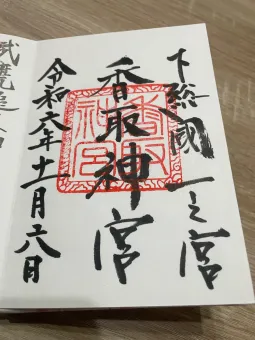 下総國一之宮
香取神宮
香取神宮
令和六年十一月六日